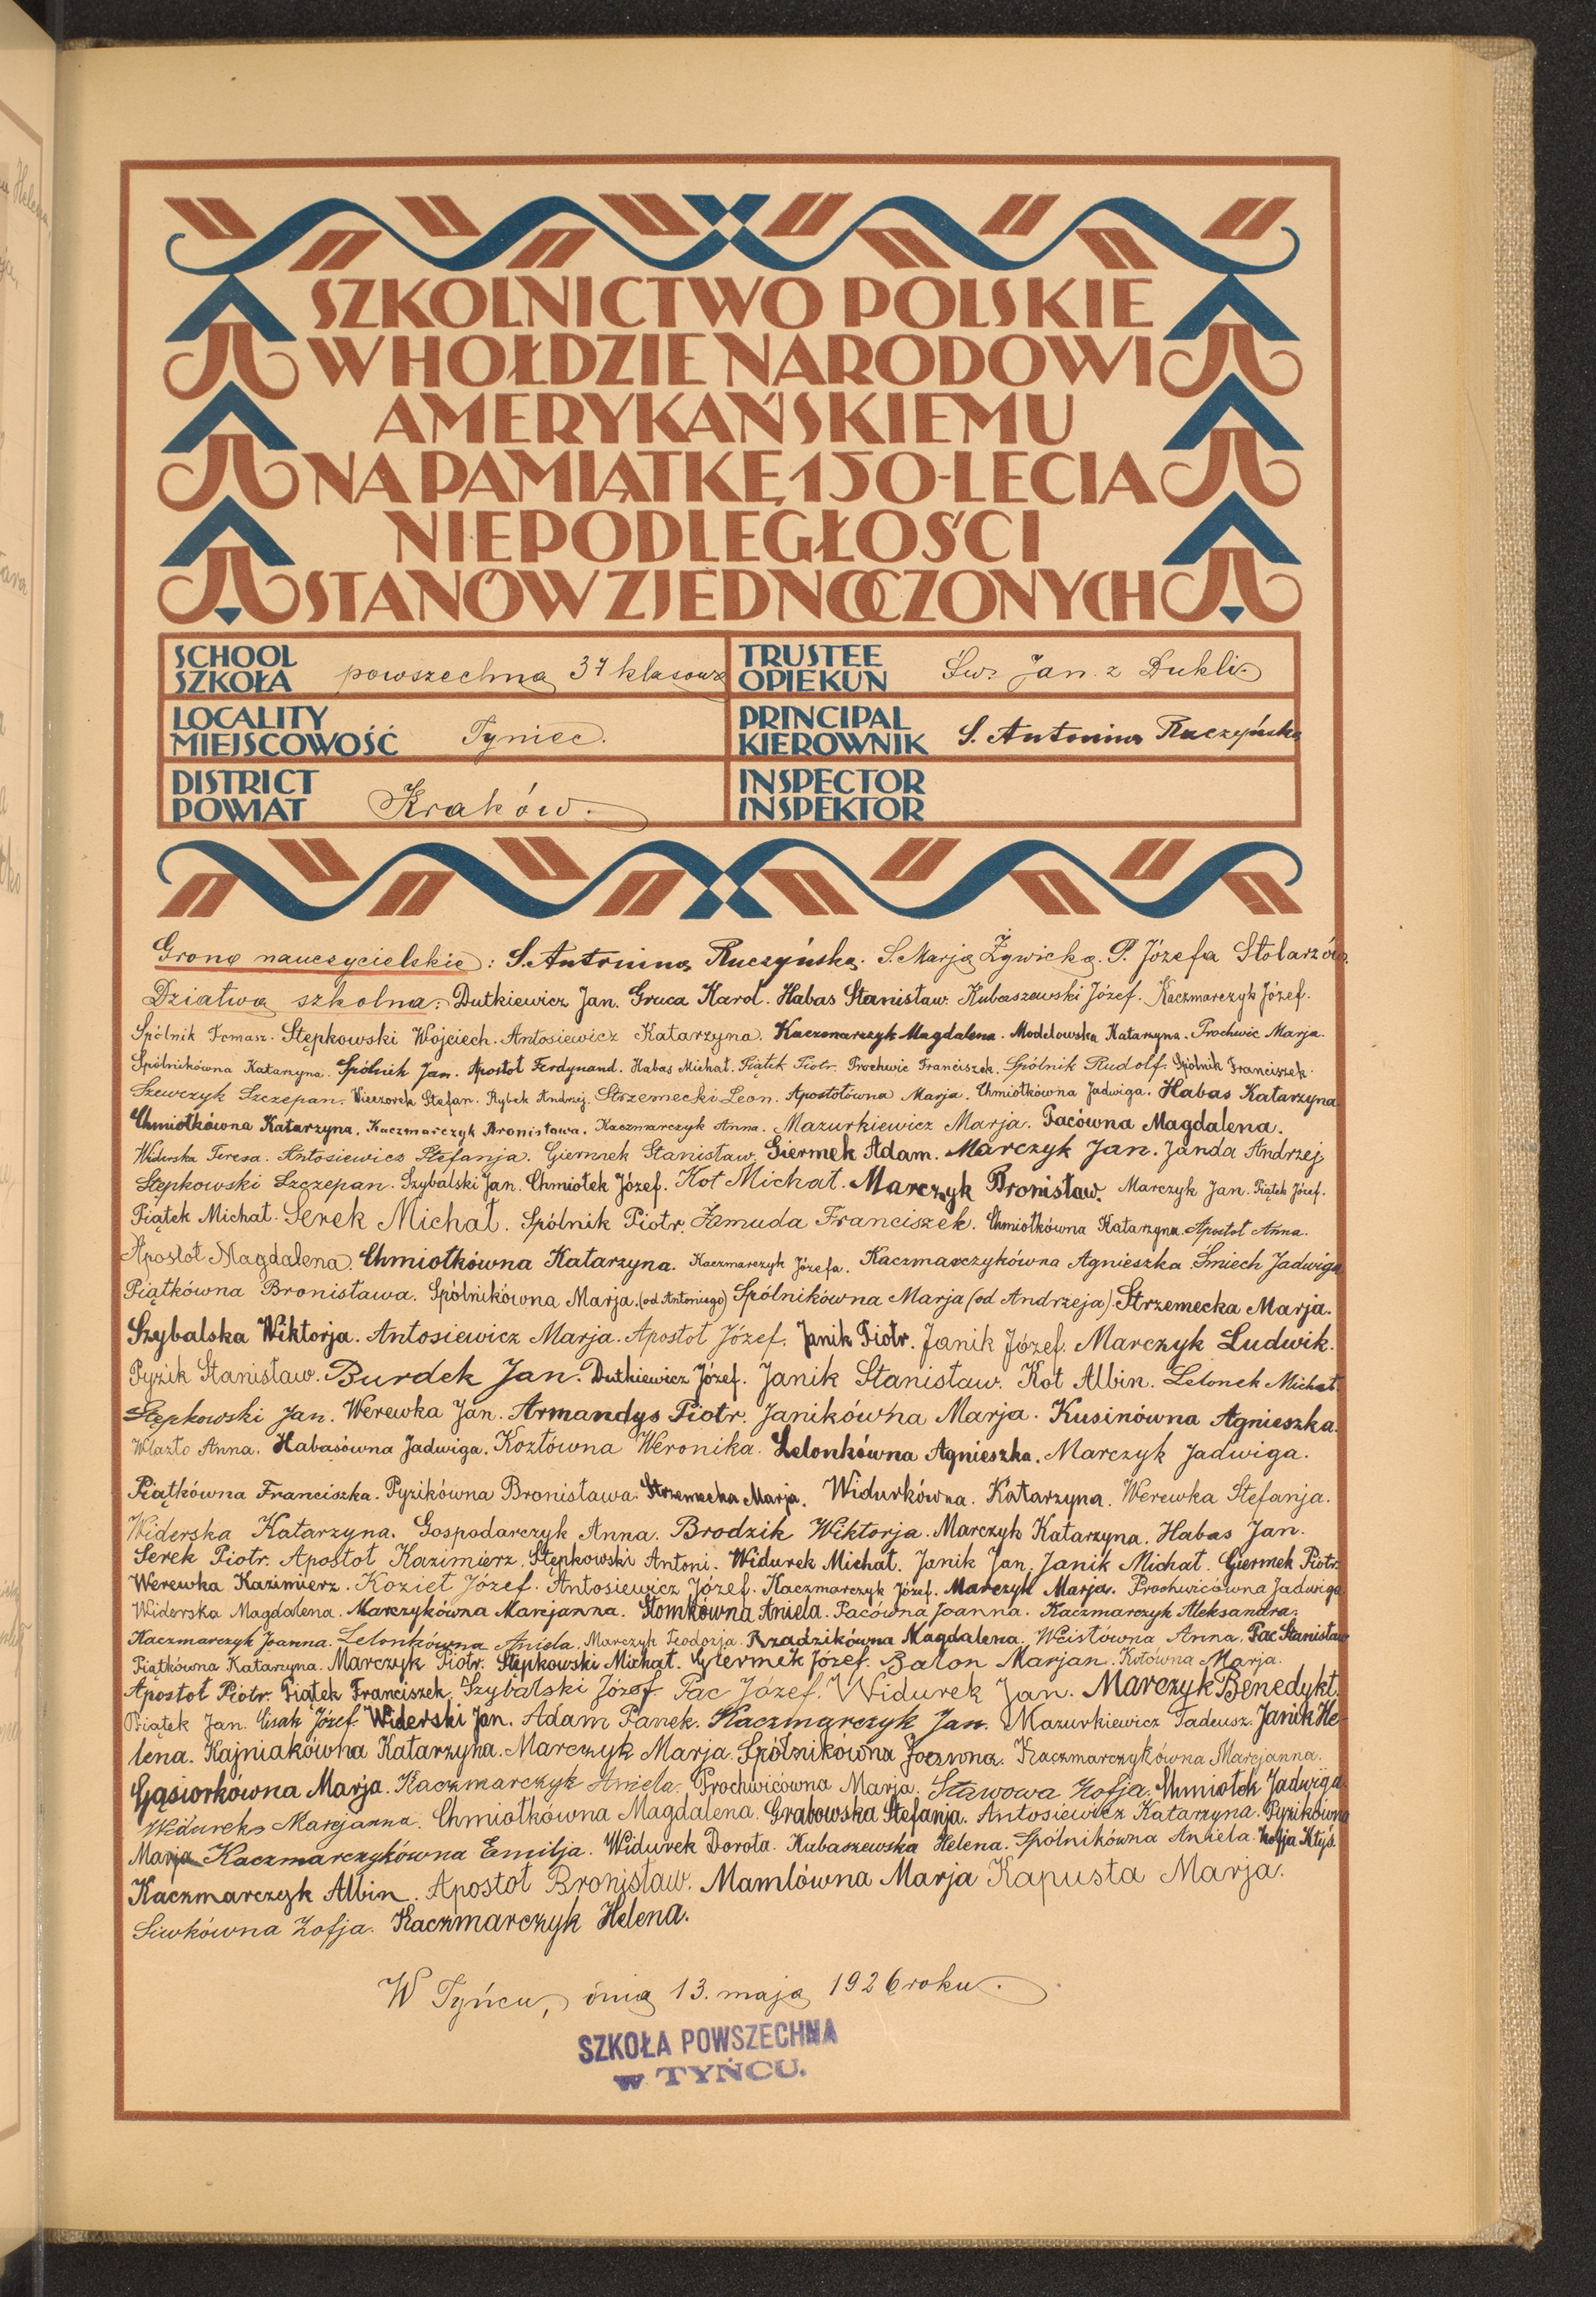 SZKOLNICTWO POLSKIE
W HOŁDZIE NARODOWI
AMERYKAŃSKIEMU
NA PAMIĄTKĘ 150-LECIA
NIEPODLEGŁOŚCI
STANÓW ZJEDNOCZONYCH
SCHOOL
SZKOŁA powszechna 3 klasowa
TRUSTEE
OPIEKUN Św. Jan z Dukli.
LOCALITY
MIEJSCOWOŚĆ Tyniec.
PRINCIPAL
KIEROWNIK S. Antonina Ruczyńska
DISTRICT
POWIAT Kraków.
INSPECTOR
INSPEKTOR
Grono nauczycielskie: S. Antonina Ruczyńska. S. Marja Żywicka. P. Józefa Stolarzów.
Dziatwa szkolna: Dutkiewicz Jan. Gruca Karol. Habas Stanisław. Kubaszewski Józef. Kaczmarczyk Józef.
Spólnik Tomasz. Stępkowski Wojciech. Antosiewicz Katarzyna. Kaczmarczyk Magdalena. Modelowska Katarzyna. Prochwic Marja.
Spólnikówna Katarzyna. Spólnik Jan. Apostoł Ferdynand. Habas Michał. Piątek Piotr. Prochwic Franciszek. Spólnik Rudolf. Spólnik Franciszek.
Szewczyk Szczepan. Wieczorek Stefan. Rybek Andrzej. Strzemecki Leon. Apostołówna Marja. Chmiołkówna Jadwiga. Habas Katarzyna.
Chmiołkówna Katarzyna. Kaczmarczyk Bronisława. Kaczmarczyk Anna. Mazurkiewicz Marja. Pacówna Magdalena.
Widerska Teresa. Antosiewicz Stefanja. Giermek Stanisław. Giermek Adam. Marczyk Jan. Janda Andrzej
Stępkowski Szczepan. Szybalski Jan. Chmiołek Józef. Kot Michał. Marczyk Bronisław. Marczyk Jan. Piątek Józef.
Piątek Michał. Serek Michał. Spólnik Piotr. Żamuda Franciszek. Chmiołkówna Katarzyna. Apostoł Anna.
Apostoł Magdalena. Chmiołkówna Katarzyna. Kaczmarczyk Józefa. Kaczmarczykówna Agnieszka. Śmiech Jadwiga
Piątkówna Bronisława. Spólnikówna Marja. (od Antoniego) Spólnikówna Marja (od Andrzeja). Strzemecka Marja.
Szybalska Wiktorja. Antosiewicz Marja. Apostoł Józef. Janik Piotr. Janik Józef. Marczyk Ludwik.
Pyzik Stanisław. Burdek Jan. Dutkiewicz Józef. Janik Stanisław. Kot Albin. Lelonek Michał.
Stępkowski Jan. Werewka Jan. Armandys Piotr. Janikówna Marja. Kusinówna Agnieszka.
Wlazło Anna. Habasówna Jadwiga. Kozłówna Weronika. Lelonkówna Agnieszka. Marczyk Jadwiga.
Piątkówna Franciszka. Pyzikówna Bronisława. Strzemecka Marja. Widurkówna. Katarzyna. Werewka Stefanja.
Widerska Katarzyna. Gospodarczyk Anna. Brodzik Wiktorja. Marczyk Katarzyna. Habas Jan.
Serek Piotr. Apostoł Kazimierz. Stępkowski Antoni. Widurek Michał. Janik Jan. Janik Michał. Giermek Piotr.
Werewka Kazimierz. Kozieł Józef. Antosiewicz Józef. Kaczmarczyk Józef. Marczyk Marja. Prochwicówna Jadwiga
Widerska Magdalena. Marczykówna Marcjanna. Słomkówna Aniela. Pacówna Joanna. Kaczmarczyk Aleksandra.
Kaczmarczyk Joanna. Lelonkówna Aniela. Marczyk Teodozja. Rzadzikówna Magdalena. Weistówna Anna. Pac Stanisław
Piątkówna Katarzyna. Marczyk Piotr. Stępkowski Michał. Giermek Józef. Balon Marjan. Kotówna Marja.
Apostoł Piotr. Piątek Franciszek. Szybalski Józef. Pac Józef. Widurek Jan. Marczyk Benedykt.
Piątek Jan. Cisak Józef. Widerski Jan. Adam Panek. Kaczmarczyk Jan. Mazurkiewicz Tadeusz. Janik He-
lena. Kajniakówna Katarzyna. Marczyk Marja. Spólnikówna Joanna. Kaczmarczykówna Marcjanna.
Gąsiorkówna Marja. Kaczmarczyk Aniela. Prochwicówna Marja. Stawowa Zofja. Chmiołek Jadwiga.
Widurek Marcjanna. Chmiołkówna Magdalena. Grabowska Stefanja. Antosiewicz Katarzyna. Pyzikówna
Marja Kaczmarczykówna Emilja. Widurek Dorota. Kubaszewska Helena. Spólnikówna Aniela. Zofja Kłyś.
Kaczmarczyk Albin. Apostoł Bronisław. Mamlówna Marja Kapusta Marja.
Siwkówna Zofja. Kaczmarczyk Helena.
W Tyńcu, dnia 13. maja 1926 roku.
SZKOŁA POWSZECHNA
w TYŃCU.